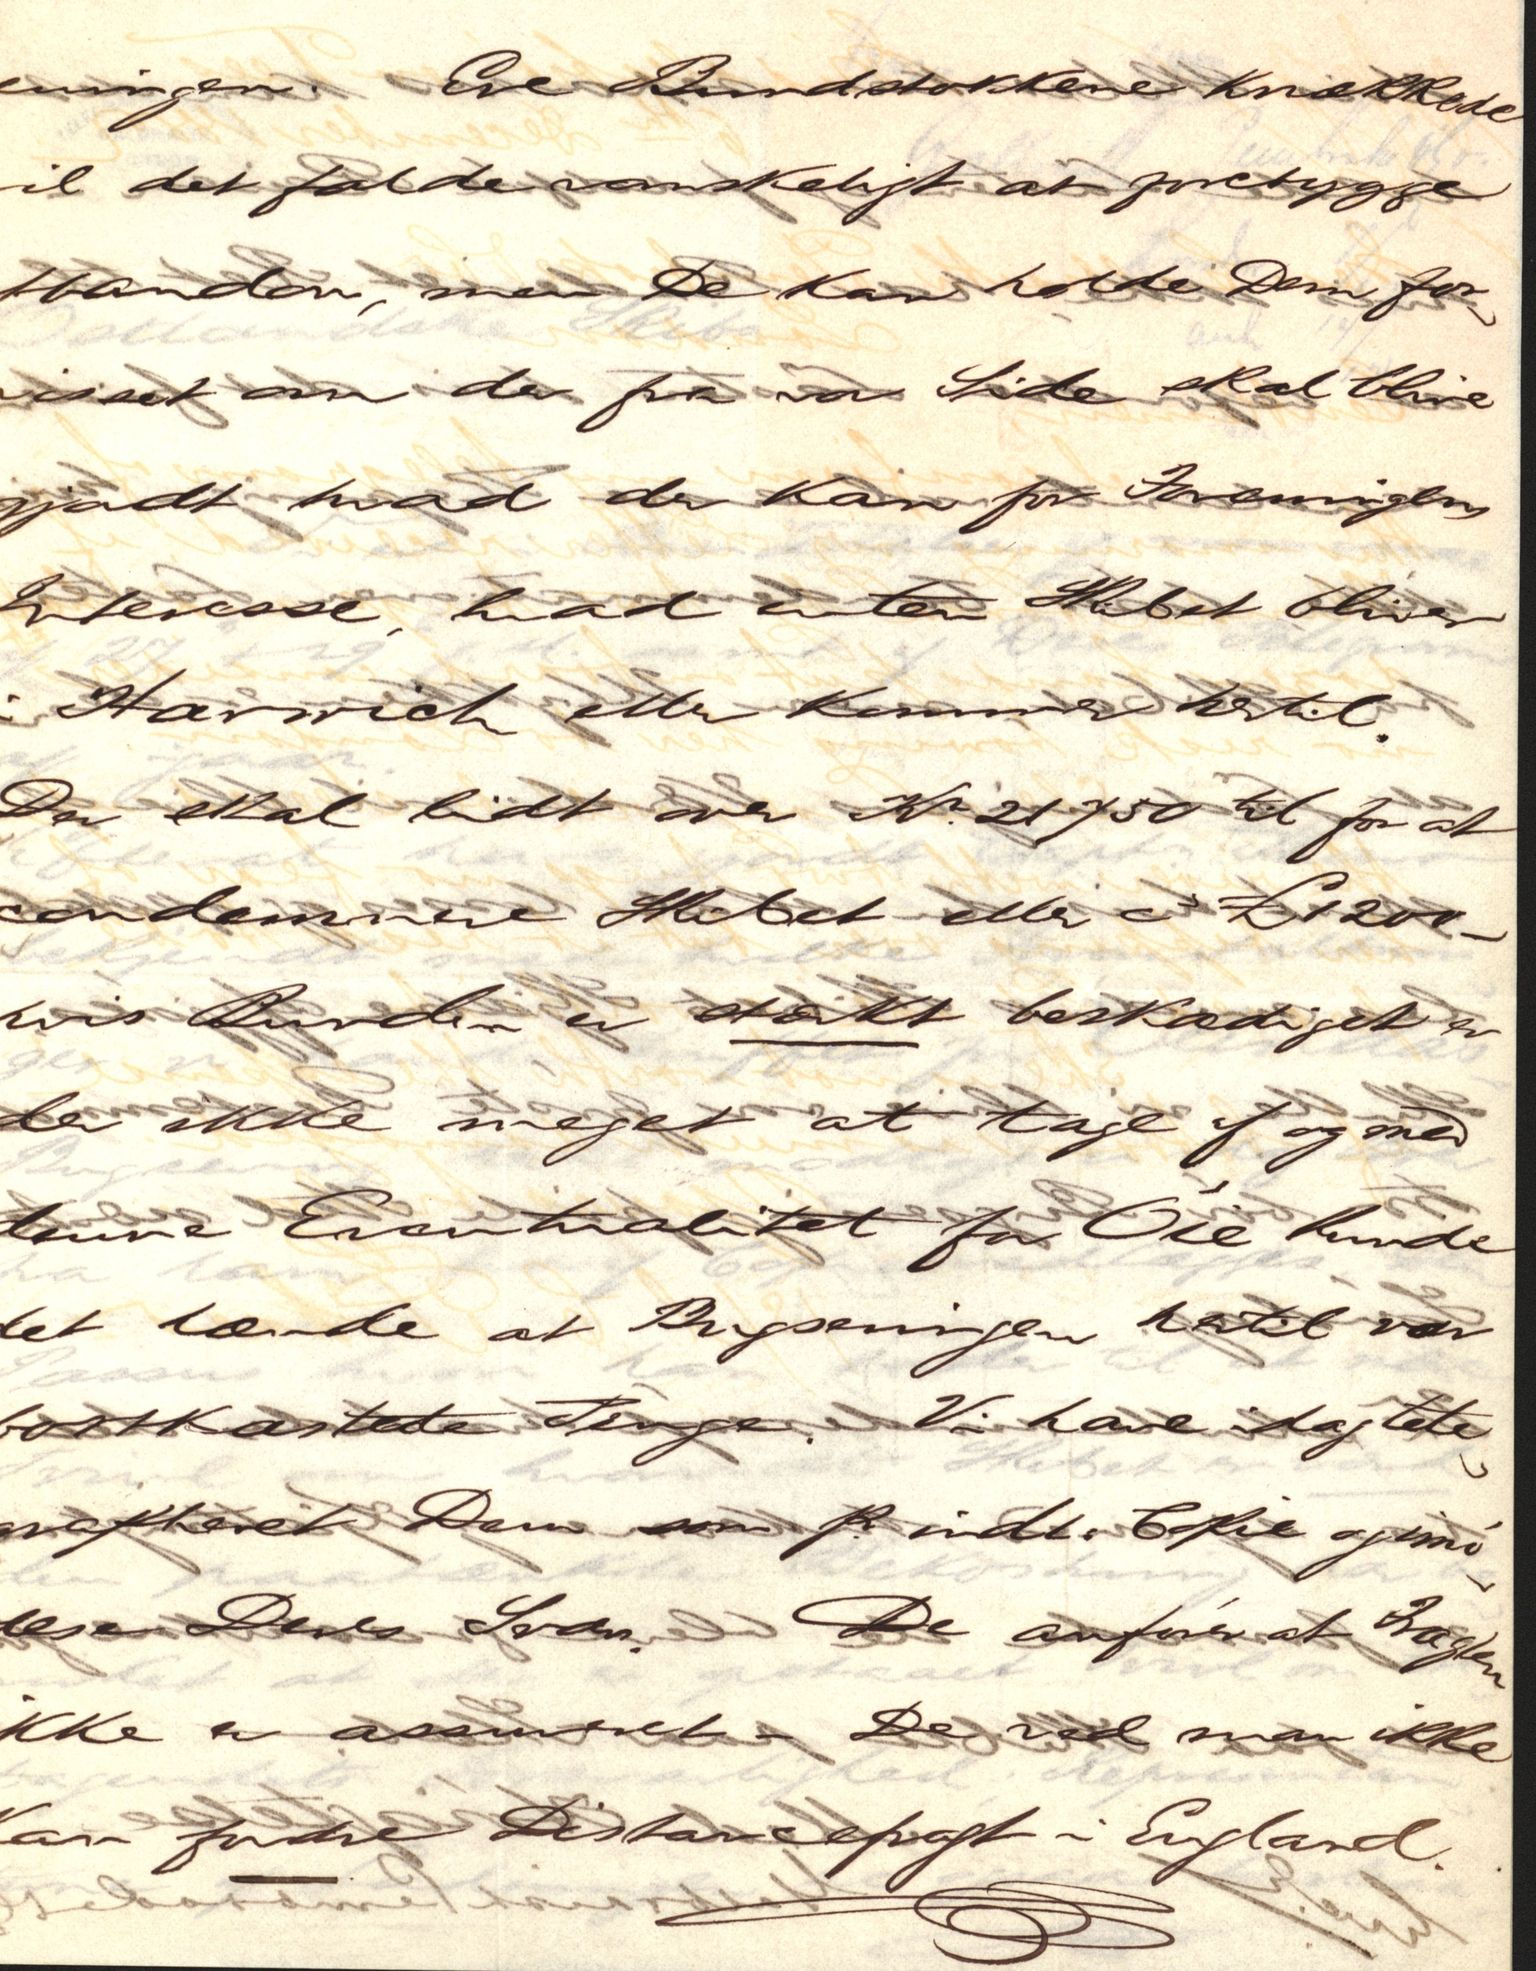 eningen. Ere Bundstokkene knækkede
il det falde vanskeligt at forebygge
standen, men De kan holde Dem for-
visset om der fra vor Side skal blive
gjodt hvad der kan for Foreningens
Interesse, hvad enten Skibet bliver
i Harwich eller kommer hertil.
Der skal lidt over Kr. 21750 til for at
condemnere Skibet eller ca £1200-
hvis Bunden er stærkt beskadiget er
der ikke meget at tage af og med
denne Eventualitet for Öie kunde
det hænde at Bugseringen hertil var
bortkastede Penge. Vi have idag tele-
graferet Dem som pr. indl. Copie og imö-
dese Deres Svar. De anförer at Fragten
ikke er assureret - De ved man ikke
kan fordre Distancefragt i England.